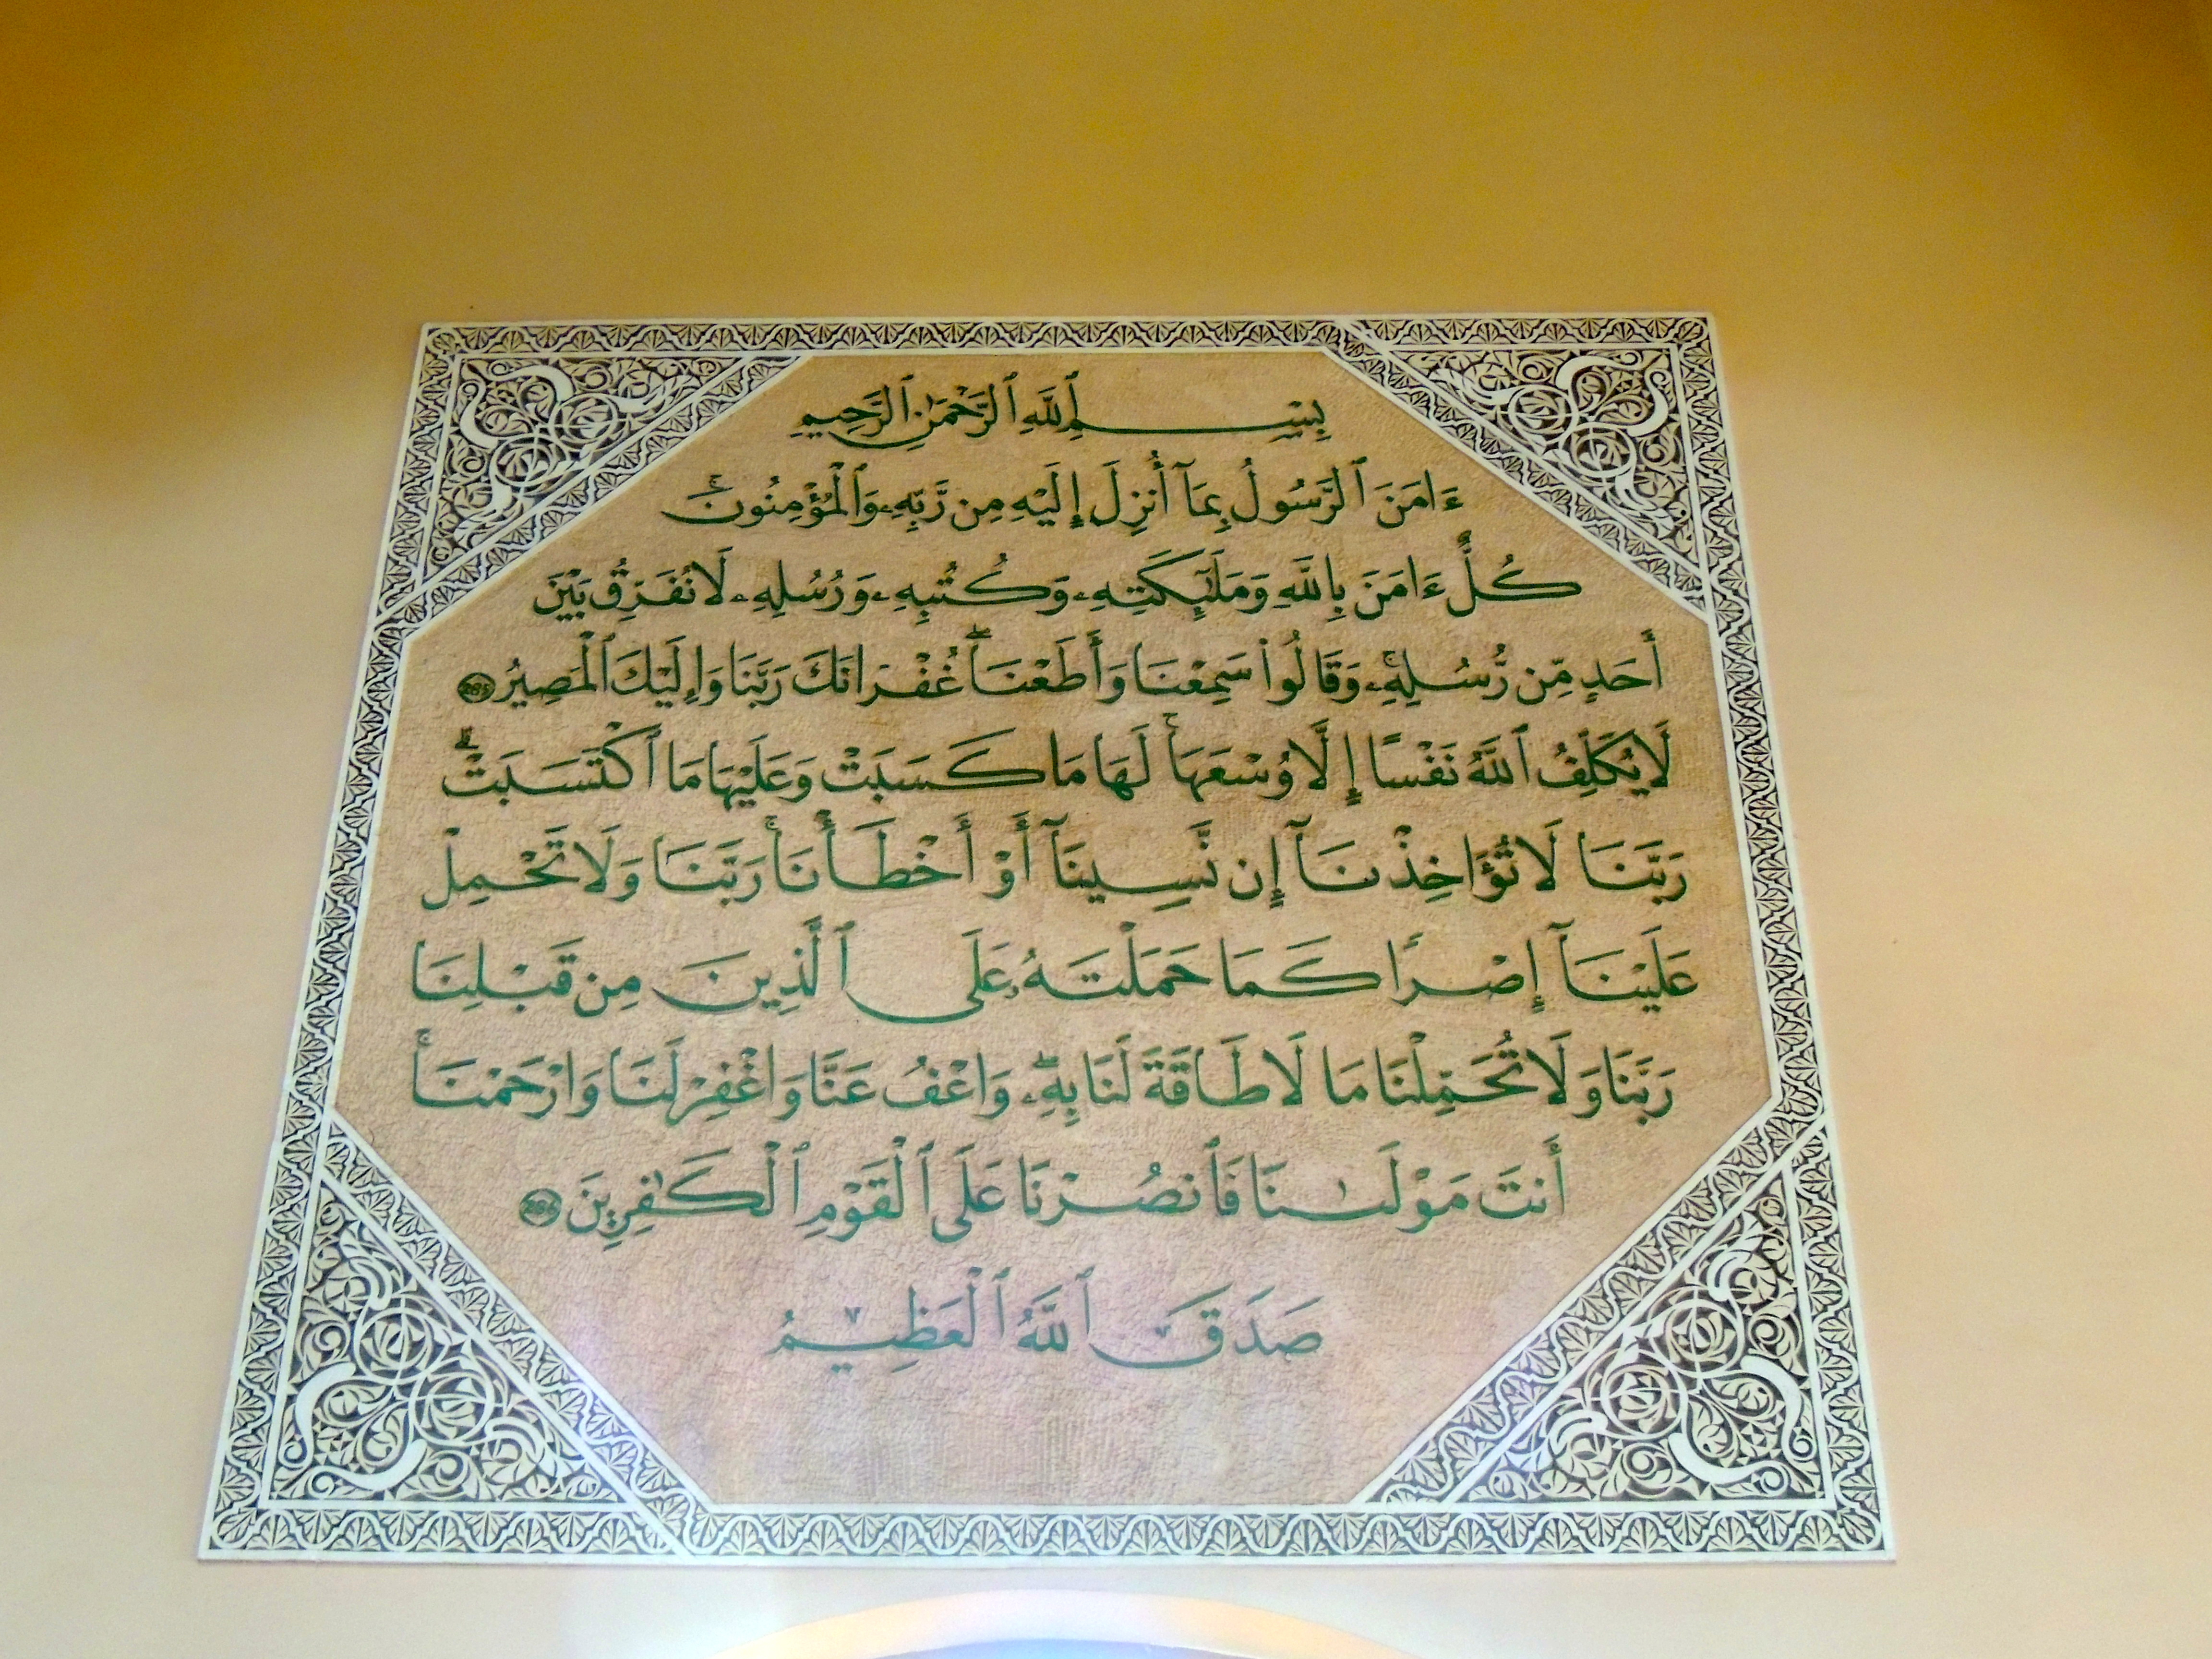 بِسْمِ ٱللَّهِ ٱلرَّحْمَٰنِ ٱلرَّحِيمِ
ءَامَنَ ٱلرَّسُولُ بِمَآ أُنزِلَ إِلَيْهِ مِن رَّبِّهِۦ وَٱلْمُؤْمِنُونَ ۚ
كُلٌّ ءَامَنَ بِاللَّهِ وَمَلَٰٓئِكَتِهِۦ وَكُتُبِهِۦ وَرُسُلِهِۦ لَا نُفَرِّقُ بَيْنَ
أَحَدٍ مِّن رُّسُلِهِۦ ۚ وَقَالُوا۟ سَمِعْنَا وَأَطَعْنَا ۖ غُفْرَانَكَ رَبَّنَا وَإِلَيْكَ ٱلْمَصِيرُ 285
لَا يُكَلِّفُ ٱللَّهُ نَفْسًا إِلَّا وُسْعَهَا ۚ لَهَا مَا كَسَبَتْ وَعَلَيْهَا مَا ٱكْتَسَبَتْ ۗ
رَبَّنَا لَا تُؤَاخِذْنَآ إِن نَّسِينَآ أَوْ أَخْطَأْنَا ۚ رَبَّنَا وَلَا تَحْمِلْ
عَلَيْنَآ إِصْرًا كَمَا حَمَلْتَهُۥ عَلَى ٱلَّذِينَ مِن قَبْلِنَا
رَبَّنَا وَلَا تُحَمِّلْنَا مَا لَا طَاقَةَ لَنَا بِهِۦ ۖ وَاعْفُ عَنَّا وَاغْفِرْ لَنَا وَارْحَمْنَا ۚ
أَنتَ مَوْلَىٰنَا فَٱنصُرْنَا عَلَى ٱلْقَوْمِ ٱلْكَٰفِرِينَ 286
صَدَقَ ٱللَّهُ ٱلْعَظِيمُ